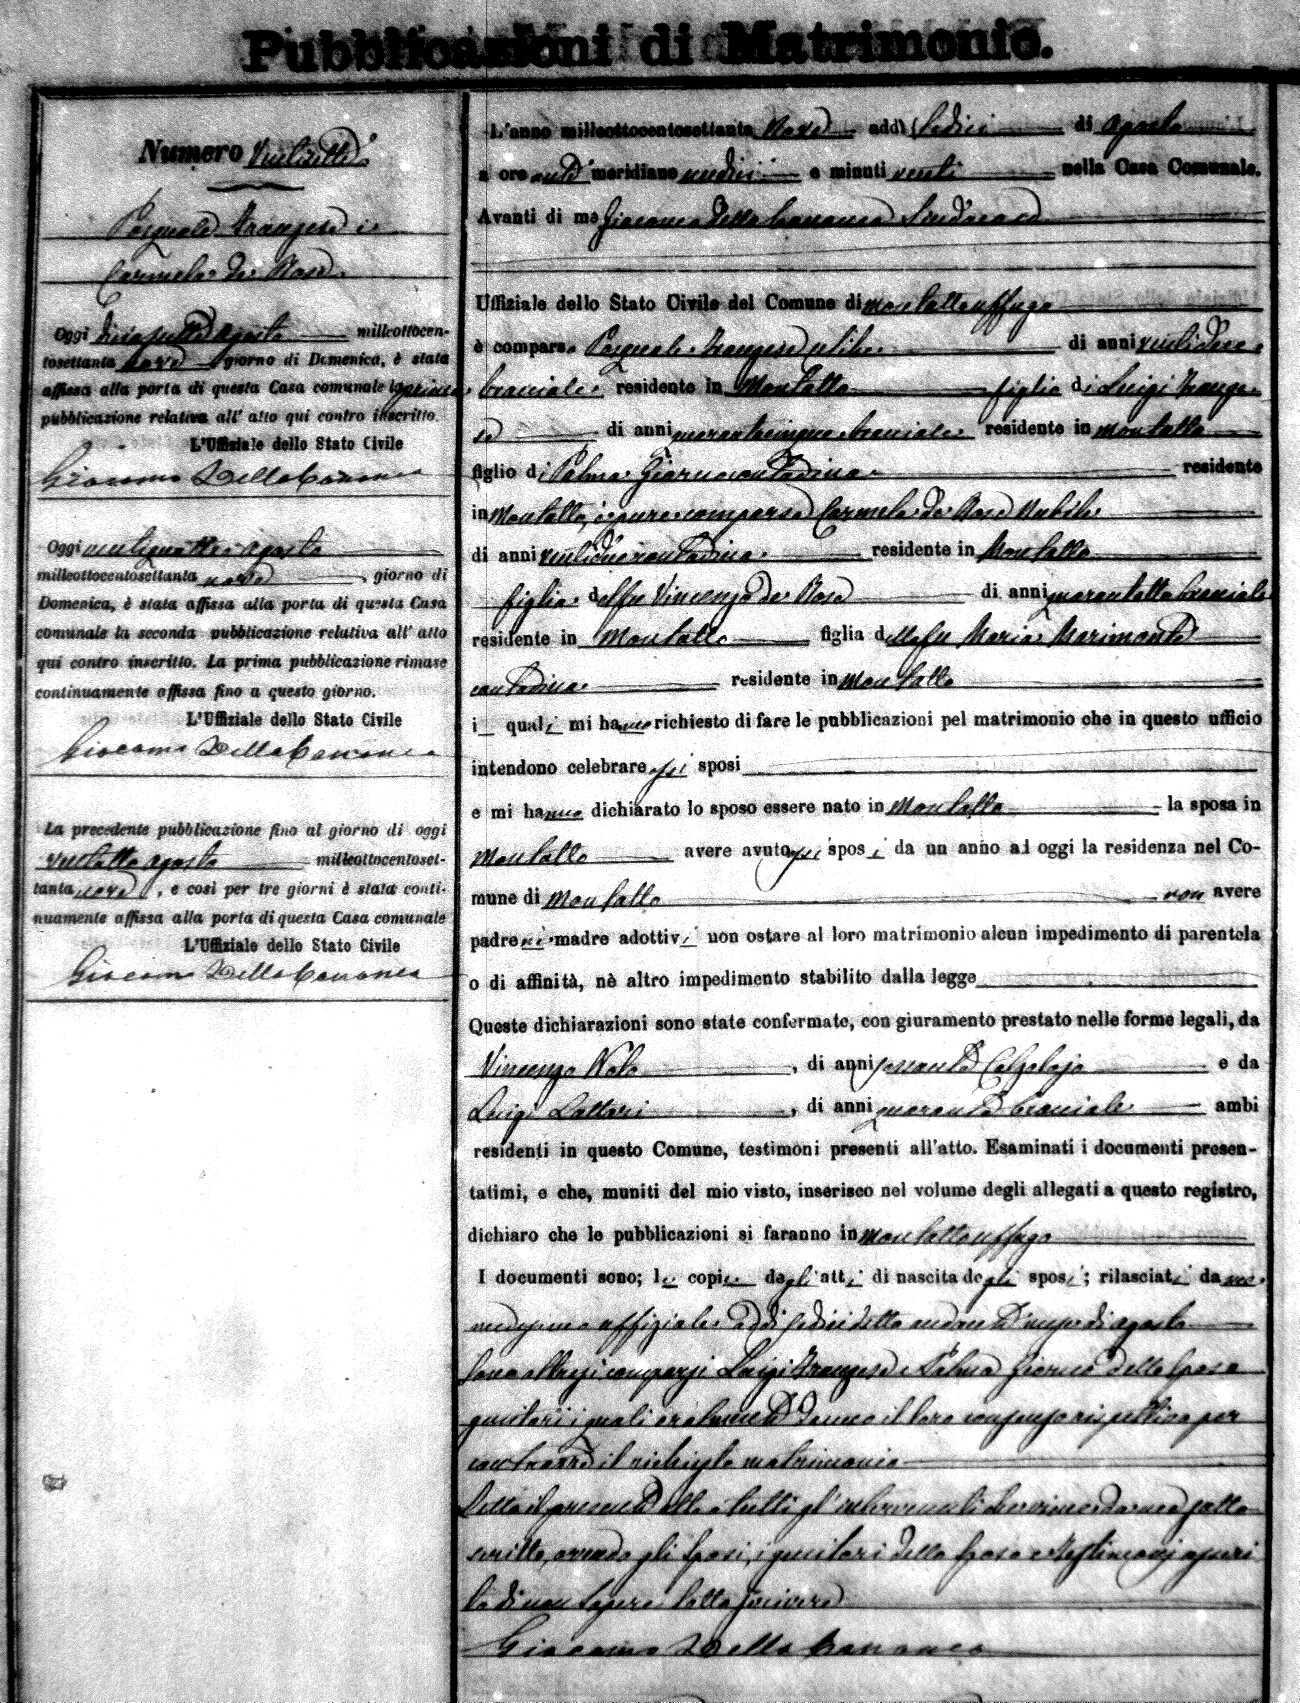 Pubblicazioni di Matrimonio.
Numero Ventisette
Pasquale Franzese e
Carmela de Rose
Oggi diciasette agosto milleottocen-
tosettanta nove giorno di Domenica, è stata
affissa alla porta di questa Casa comunale la prima
pubblicazione relativa all' atto qui contro inscritto.
L'Uffiziale dello Stato Civile
Giacomo Della Cananea
Oggi ventiquattro agosto
milleottocentosettanta nove, giorno di
Domenica, è stata affissa alla porta di questa Casa
comunale la seconda pubblicazione relativa all' atto
qui contro inscritto. La prima pubblicazione rimase
continuamente affissa fino a questo giorno.
L'Uffiziale dello Stato Civile
Giacomo Della Cananea
La precedente pubblicazione fino al giorno di oggi
ventotto agosto milleottocentoset-
tanta nove, e così per tre giorni è stata conti-
nuamente affissa alla porta di questa Casa comunale
L'Uffiziale dello Stato Civile
Giacomo Della Cananea
L'anno milleottocentosettanta nove addì sedici di agosto
a ore anti meridiane undici e minuti venti nella Casa Comunale.
Avanti di me Giacomo Della Cananea Sindaco
Uffiziale dello Stato Civile del Comune di Montalto Uffugo
è comparso Pasquale Franzese celibe di anni
bracciale residente in Montalto figlio di Luigi Franze
se di anni quarantacinque bracciale residente in Montalto
figlio di Palma contadina residente
in Montalto, è pure comparsa Carmela de Rose Nubile
di anni ventidue contadina residente in Montalto
figlia del fu Vincenzo de Rose di anni quarantotto bracciale
residente in Montalto figlia della fu Maria Marimonte
contadina residente in Montalto
i quali mi hanno richiesto di fare le pubblicazioni pel matrimonio che in questo ufficio
intendono celebrare essi sposi
e mi hanno dichiarato lo sposo essere nato in Montalto la sposa in
Montalto avere avuto essi sposi da un anno ad oggi la residenza nel Co-
mune di Montalto non avere
padre nè madre adottivi non ostare al loro matrimonio alcun impedimento di parentela
o di affinità, nè altro impedimento stabilito dalla legge
Queste dichiarazioni sono state confermate, con giuramento prestato nelle forme legali, da
Vincenzo, di anni sessanta Calzolajo e da
Luigi Lattari, di anni quaranta bracciale ambi
residenti in questo Comune, testimoni presenti all'atto. Esaminati i documenti presen-
tatimi, e che, muniti del mio visto, inserisco nel volume degli allegati a questo registro,
dichiaro che le pubblicazioni si faranno in Montalto Uffugo
I documenti sono; le copie degli atti di nascita degli sposi; rilasciati da me
medesimo uffiziale addì sedici detto andante mese di agosto
Sono altresì comparsi Luigi Franzese e Palma dello sposo
genitori i quali oralmente danno il loro consenso rispettivo per
contrarre il richiesto matrimonio
Letto il presente atto a tutti gl' intervenuti sotto
scritto, avendo gli sposi, i genitori dello sposo e testimonj asseri
to di non sapere scrivere
Giacomo Della Cananea